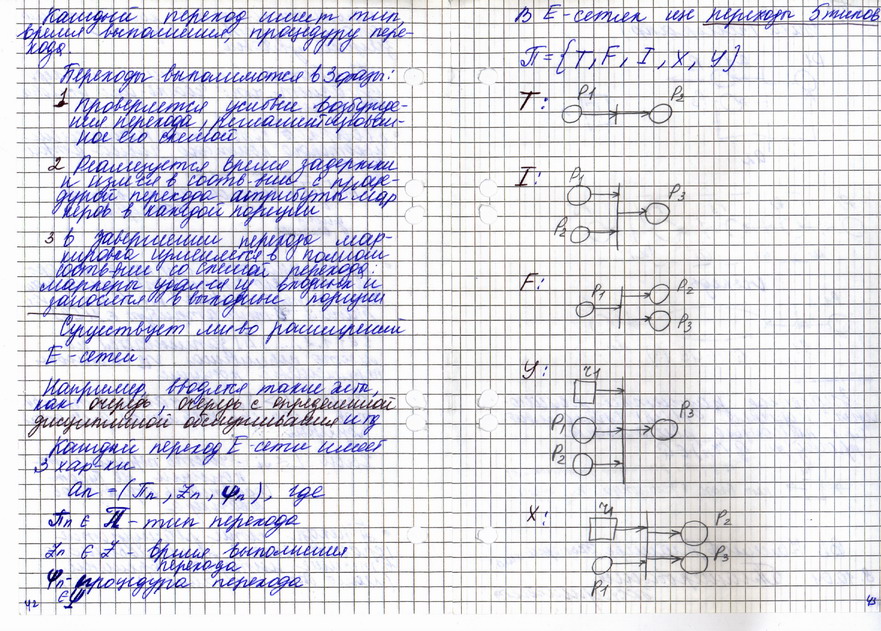 Каждый переход имеет тип,
время выполнения, процедуру пере-
хода.
Переходы выполняются в 3 фазы:
1 Проверяется условие возбужде-
ния перехода, регламентирован-
ное его схемой
2 Реализуется время задержки
и измен-я в соотв-вии с проце-
дурой перехода атрибуты мар
керов в каждой позиции
3 В завершении перехода мар-
кировка
соотв-вии со схемой перехода:
маркеры удал-ся из входных и
заносятся в выходные позиции
Существует мн-во расширений
Е-сетей.
Например, вводятся такие эл-ты,
как очередь, очередь с определенной
дисциплиной обслуживания и тд
Каждый переход Е-сети имеет
3 хар-ки
aₙ = (Πₙ, Zₙ, φₙ), где
Πₙ ∈ Π - тип перехода
Zₙ ∈ Z - время выполнения
перехода
φₙ - процедура перехода
∈ φ
42
В Е-сетях исп переходы 5 типов
Π = {T, F, I, X, Y}
T: P1 P2
I: P1 P2 P3
F: P1 P2 P3
Y: r1 P1 P2 P3
X: r1 P1 P2 P3
43